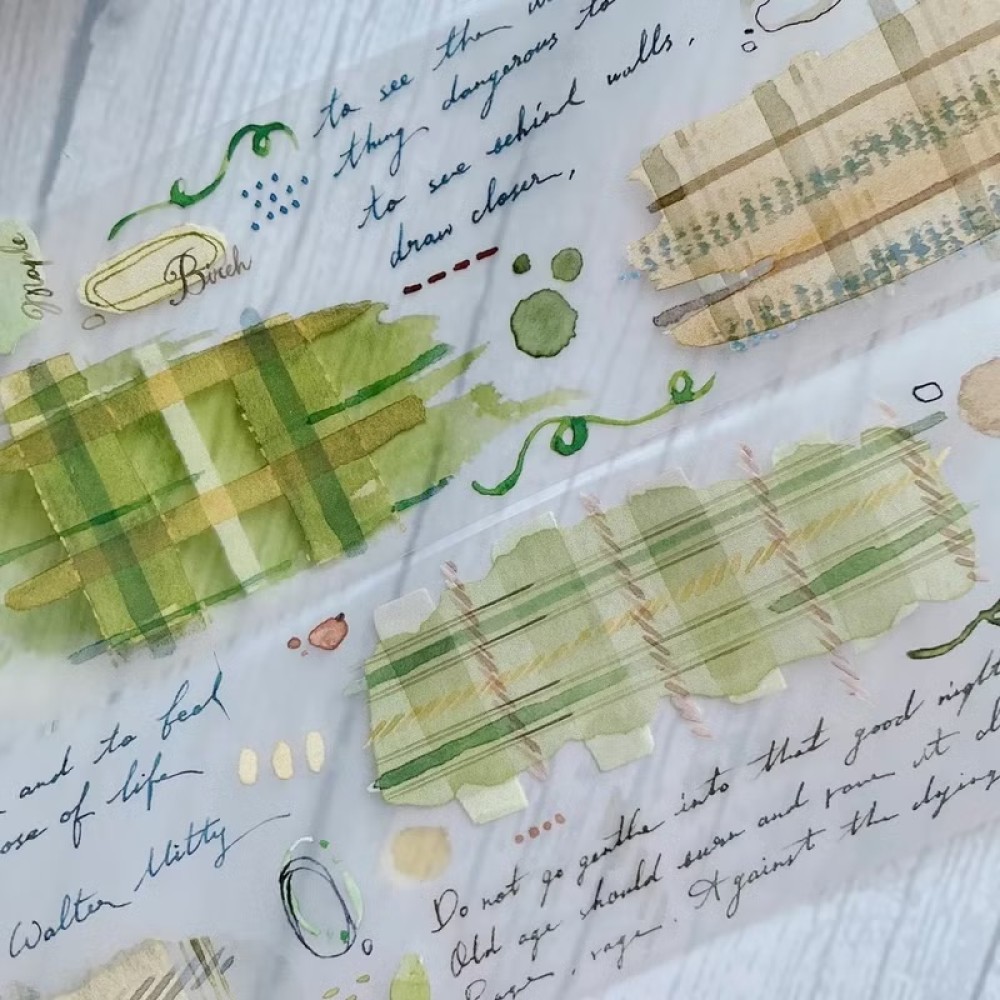 to see the
thing dangerous to
to see behind walls,
draw closer,
Birch
and to feel
of life
Walter Mitty
Do not go gentle into that good night
Old age should burn and rave it
Rage, rage. Against the dying